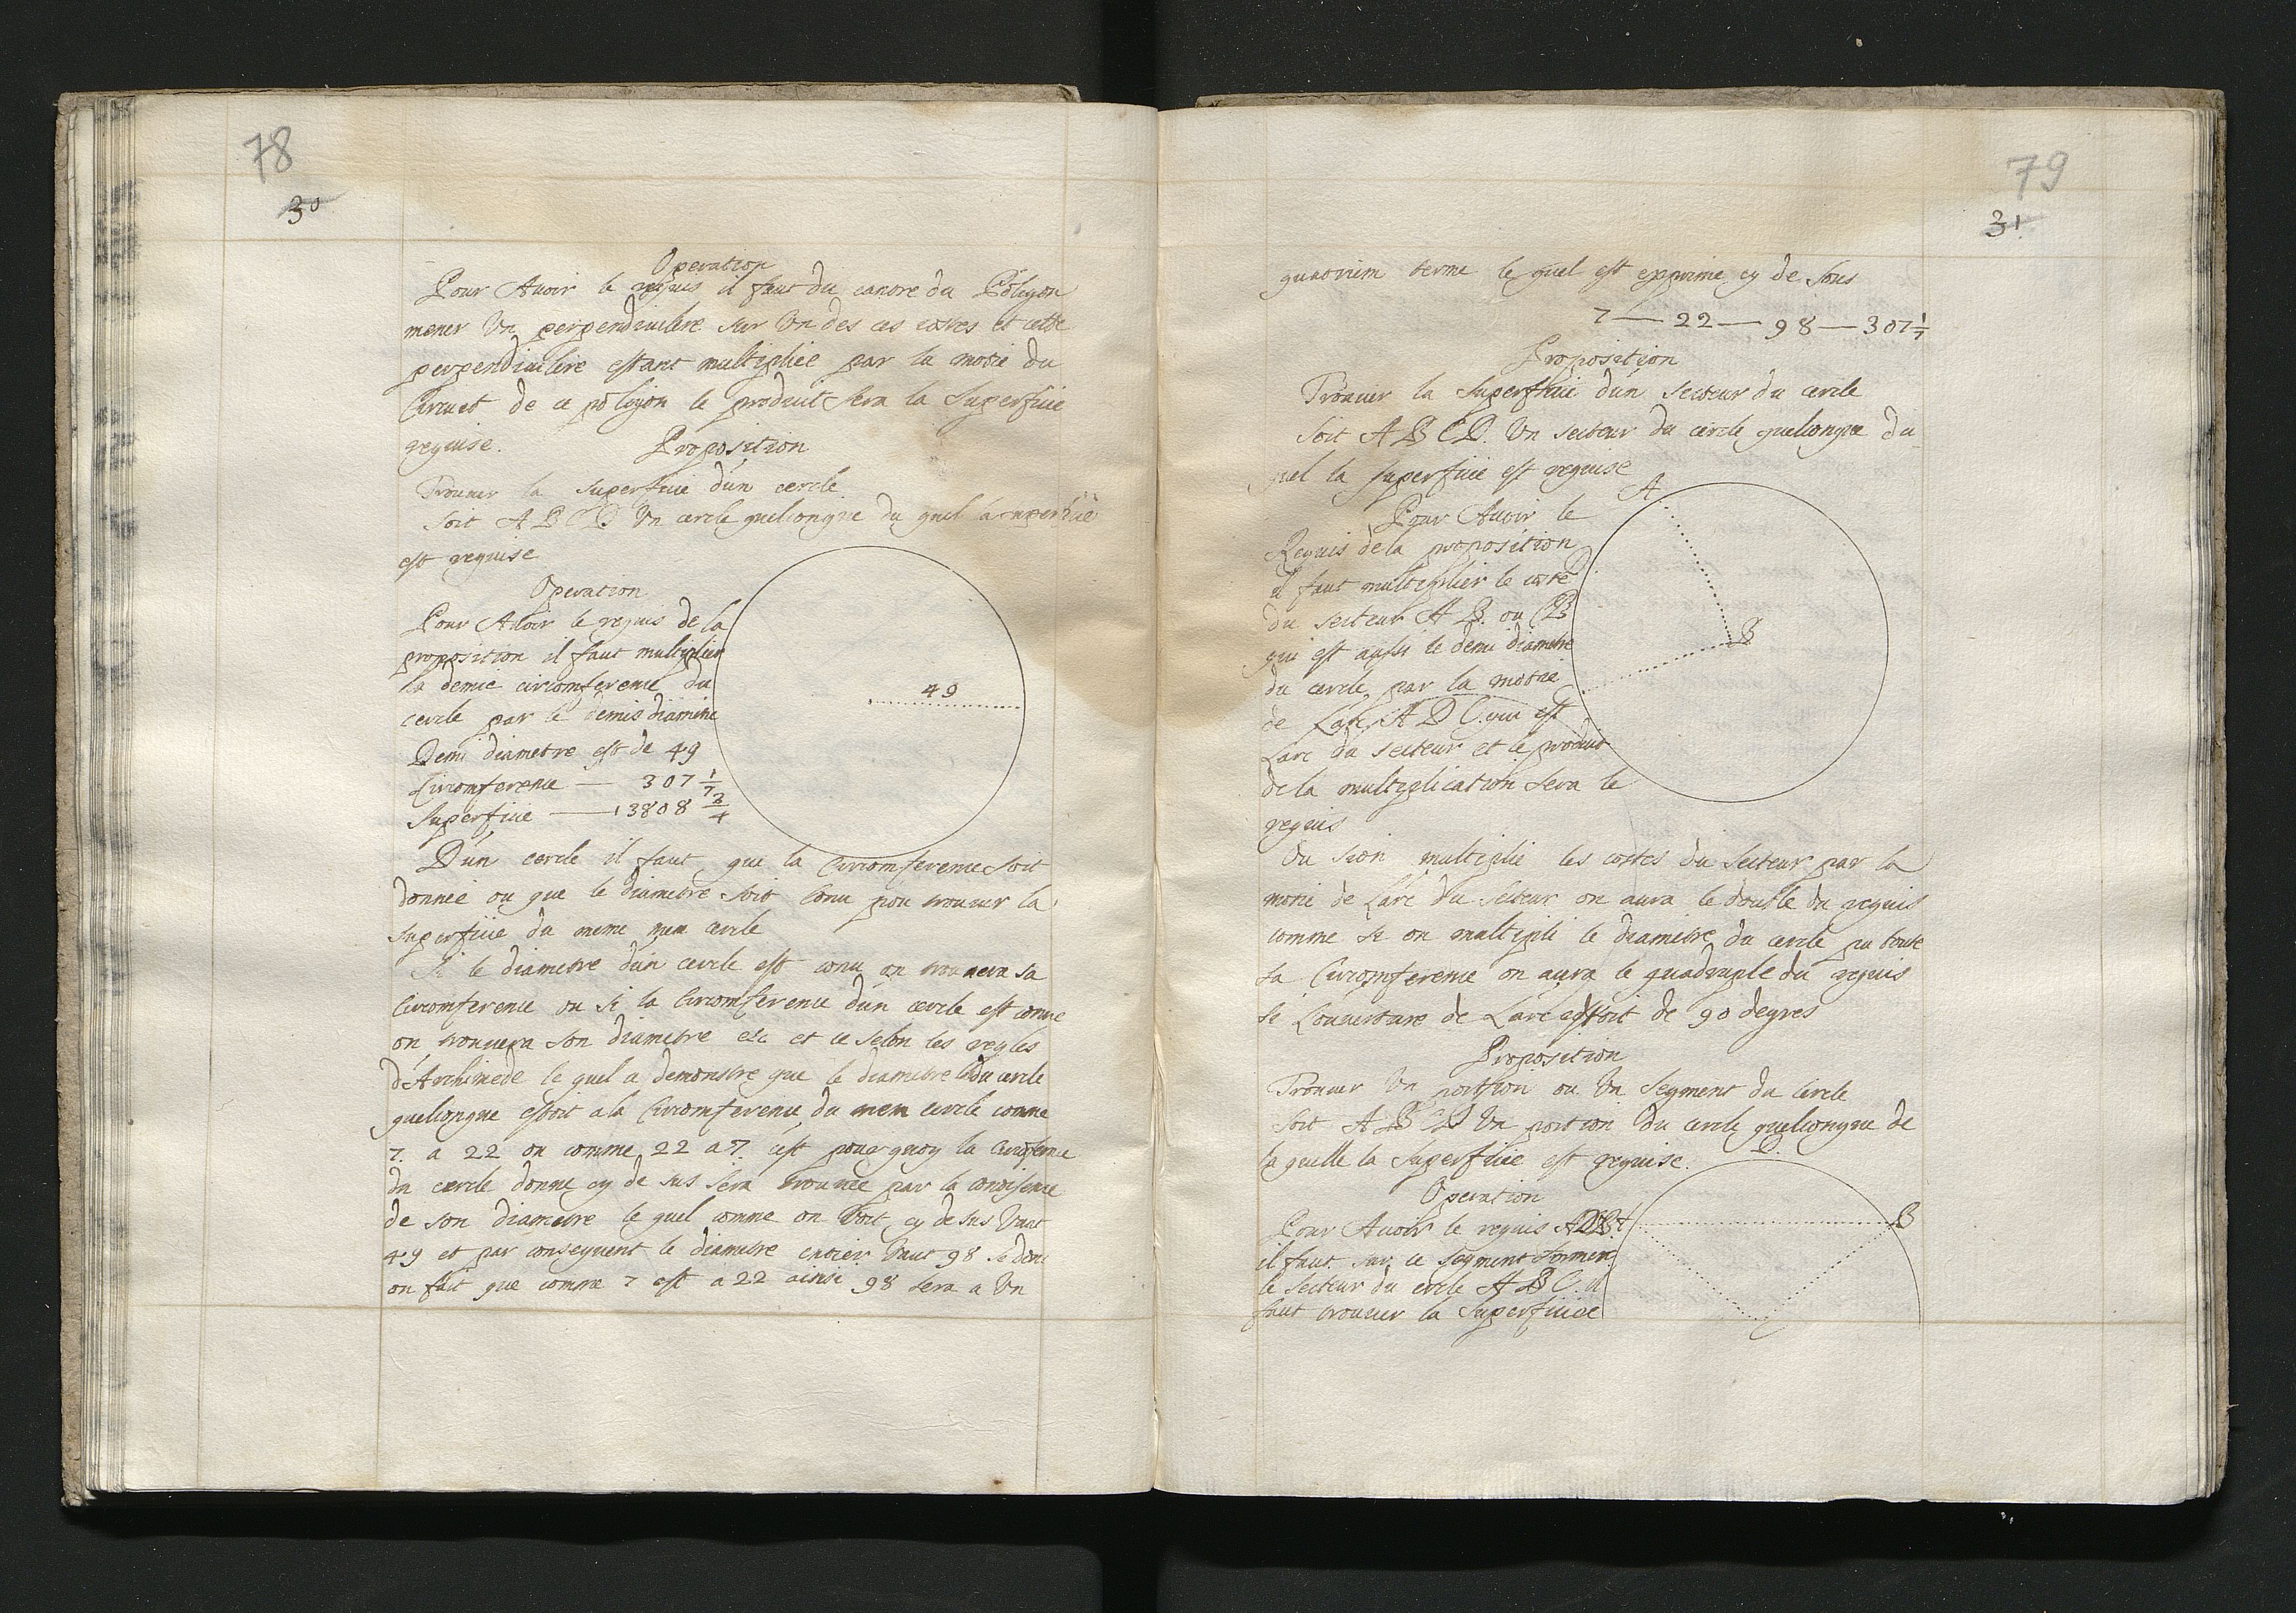 78
30
Operation
Pour Avoir le requis il faut du cantre du Poligon
mener Un perpendiculere sur Un des ces costes et cette
perpendiculere estant multipliée par la motié du
Circuet de ce poligon le produit sera la Superficie
requise. Proposition
Trouver la superficie d'un cercle.
Soit A B C D Un cercle quelconque du quel la superficie
est requise
Operation
Pour Avoir le requis de la
proposition il faut multiplier
la demie circomference du
cercle par le demis diametre
49
Demi diametre est de 49
Circomference — 307 1/7
Superficie — 13808 3/4
D'un cercle il faut que la Circomference soit
donnée ou que le diametre soit Conu pou trouver la
superficie du meme cercle
Si le diametre d'un cercle est conu on trouvera sa
Circomference ou si la Circomference d'un cercle est connue
on trouvera son diametre etc et ce selon les regles
d'Archimede le quel a demonstre que le diametre du cercle
quelconque estoit a la Circomference du mem cercle comme
7. a 22 ou comme 22 a 7. c'est pourquoy la
du cercle donne cy de sus sera trouvée par la
de son diametre le quel comme on voit cy de sus Vaut
49 et par consequent le diametre entier Vaut 98 si donc
on fait que comme 7 est a 22 ainsi 98 sera a Un
79
31.
terme le quel est exprime cy de sous
7 — 22 — 98 — 307 1/7
Proposition
Trouver la superficie d'un secteur du cercle
Soit A B C D. Un secteur du cercle quelconque du
quel la superficie est requise
A
Pour Avoir le
Requis de la proposition
D
il faut multiplier le coste
du secteur A B. ou C B
B
qui est aussi le demi diametre
du cercle, par la motié
C
de Larc A D C. qui est
Larc du secteur et le produit
de la multiplication sera le
requis
Ou sion multiplie les costes du secteur par la
motié de Larc du secteur on aura le double du requis
comme si on multipli le diametre du cercle pa toute
sa Circomference on aura le quadruple du requis
si Louverture de Larc estoit de 90 degres
Proposition
Trouver Un portion ou Un Segment du Cercle
Soit A B C D Un portion du cercle quelconque de
la quelle la Superficie est requise.
D.
Operation
Pour Avoir le requis
A
B
il faut sur ce segment former
le Secteur du cercle A B C. il
faut trouver la Superficie
C